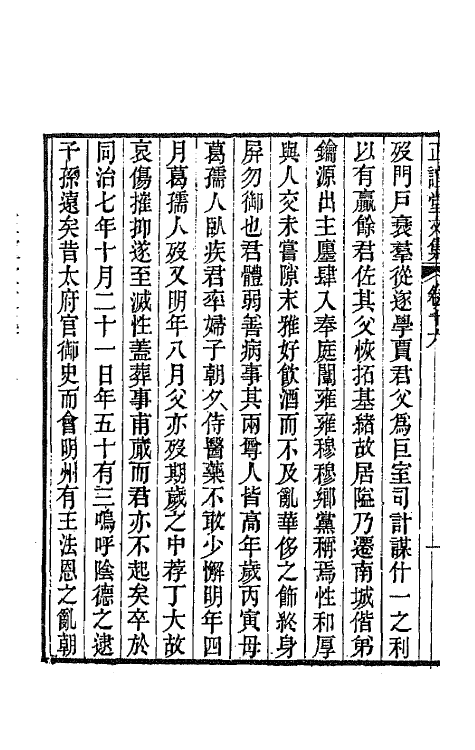 正誼堂文集 卷十六
歿門戶衰羣從遂學賈君父爲巨室司計謀什一之利
以有贏餘君佐其父恢拓基緒故居隘乃遷南城偕弟
鑰源出主廛肆入奉庭闈雍雍穆穆鄉黨稱焉性和厚
與人交未嘗隙末雅好飲酒而不及亂華侈之飾終身
屏勿御也君體弱善病事其兩尊人皆高年歲丙寅母
葛孺人臥疾君率婦子朝夕侍醫藥不敢少懈明年四
月葛孺人歿又明年八月父亦歿期歲之中荐丁大故
哀傷摧抑遂至滅性蓋葬事甫蕆而君亦不起矣卒於
同治七年十月二十一日年五十有三嗚呼陰德之逮
子孫遠矣昔太府官御史而會明州有王法恩之亂朝